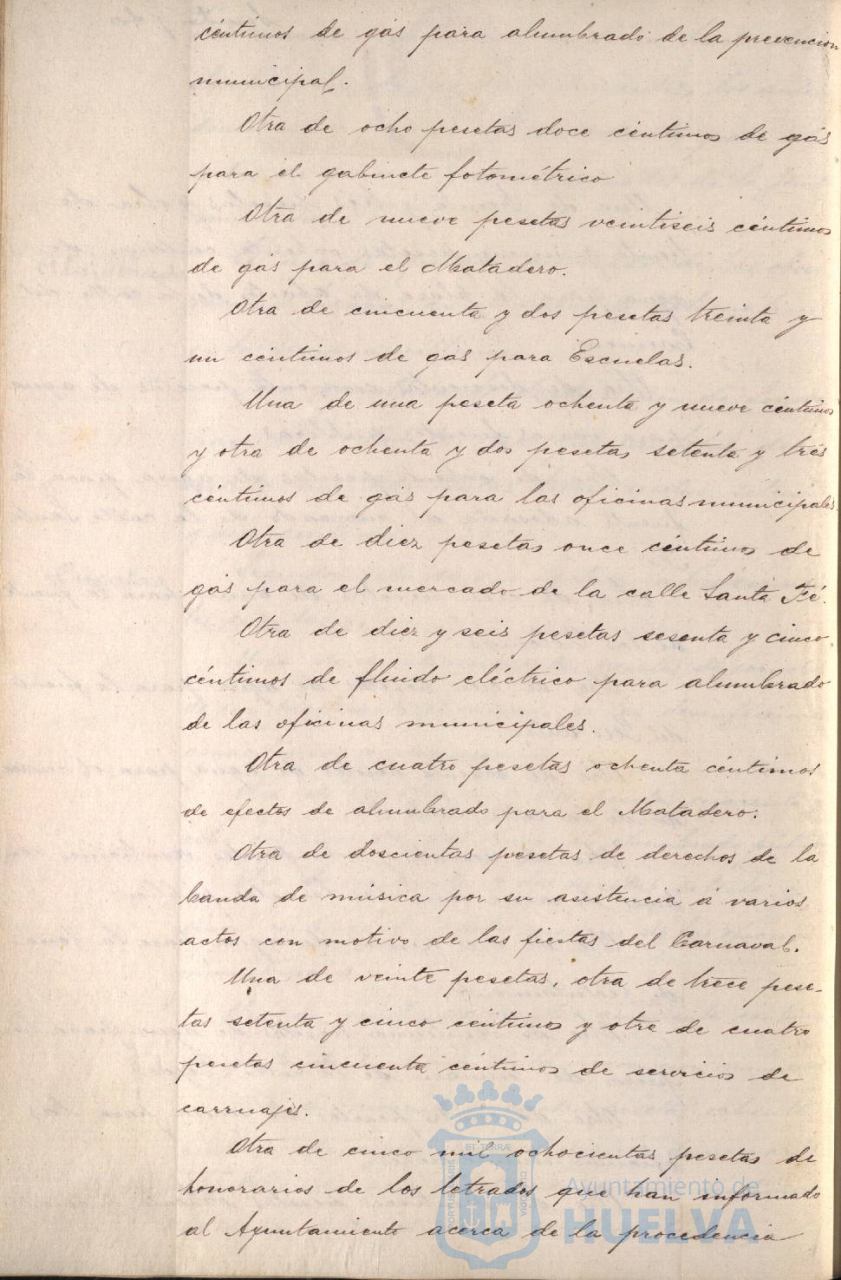 céntimos de gás para alumbrado de la prevencion
municipal.
Otra de ocho pesetas doce céntimos de gás
para el gabinete fotométrico
Otra de nueve pesetas veintiseis céntimos
de gás para el Matadero.
Otra de cincuenta y dos pesetas treinta y
un céntimos de gás para Escuelas.
Una de una peseta ochenta y nueve céntimos
y otra de ochenta y dos pesetas setenta y tres
céntimos de gás para las oficinas municipales.
Otra de diez pesetas once céntimos de
gás para el mercado de la calle Santa Fé.
Otra de diez y seis pesetas sesenta y cinco
céntimos de fluido eléctrico para alumbrado
de las oficinas municipales.
Otra de cuatro pesetas ochenta céntimos
de efectos de alumbrado para el Matadero.
Otra de doscientas pesetas de derechos de la
banda de música por su asistencia á varios
actos con motivo de las fiestas del Carnaval.
Una de veinte pesetas, otra de trece pese-
tas setenta y cinco céntimos y otra de cuatro
pesetas cincuenta céntimos de servicios de
carruajes.
Otra de cinco mil ochocientas pesetas de
honorarios de los letrados que han informado
al Ayuntamiento acerca de la procedencia
Ayuntamiento de
HUELVA